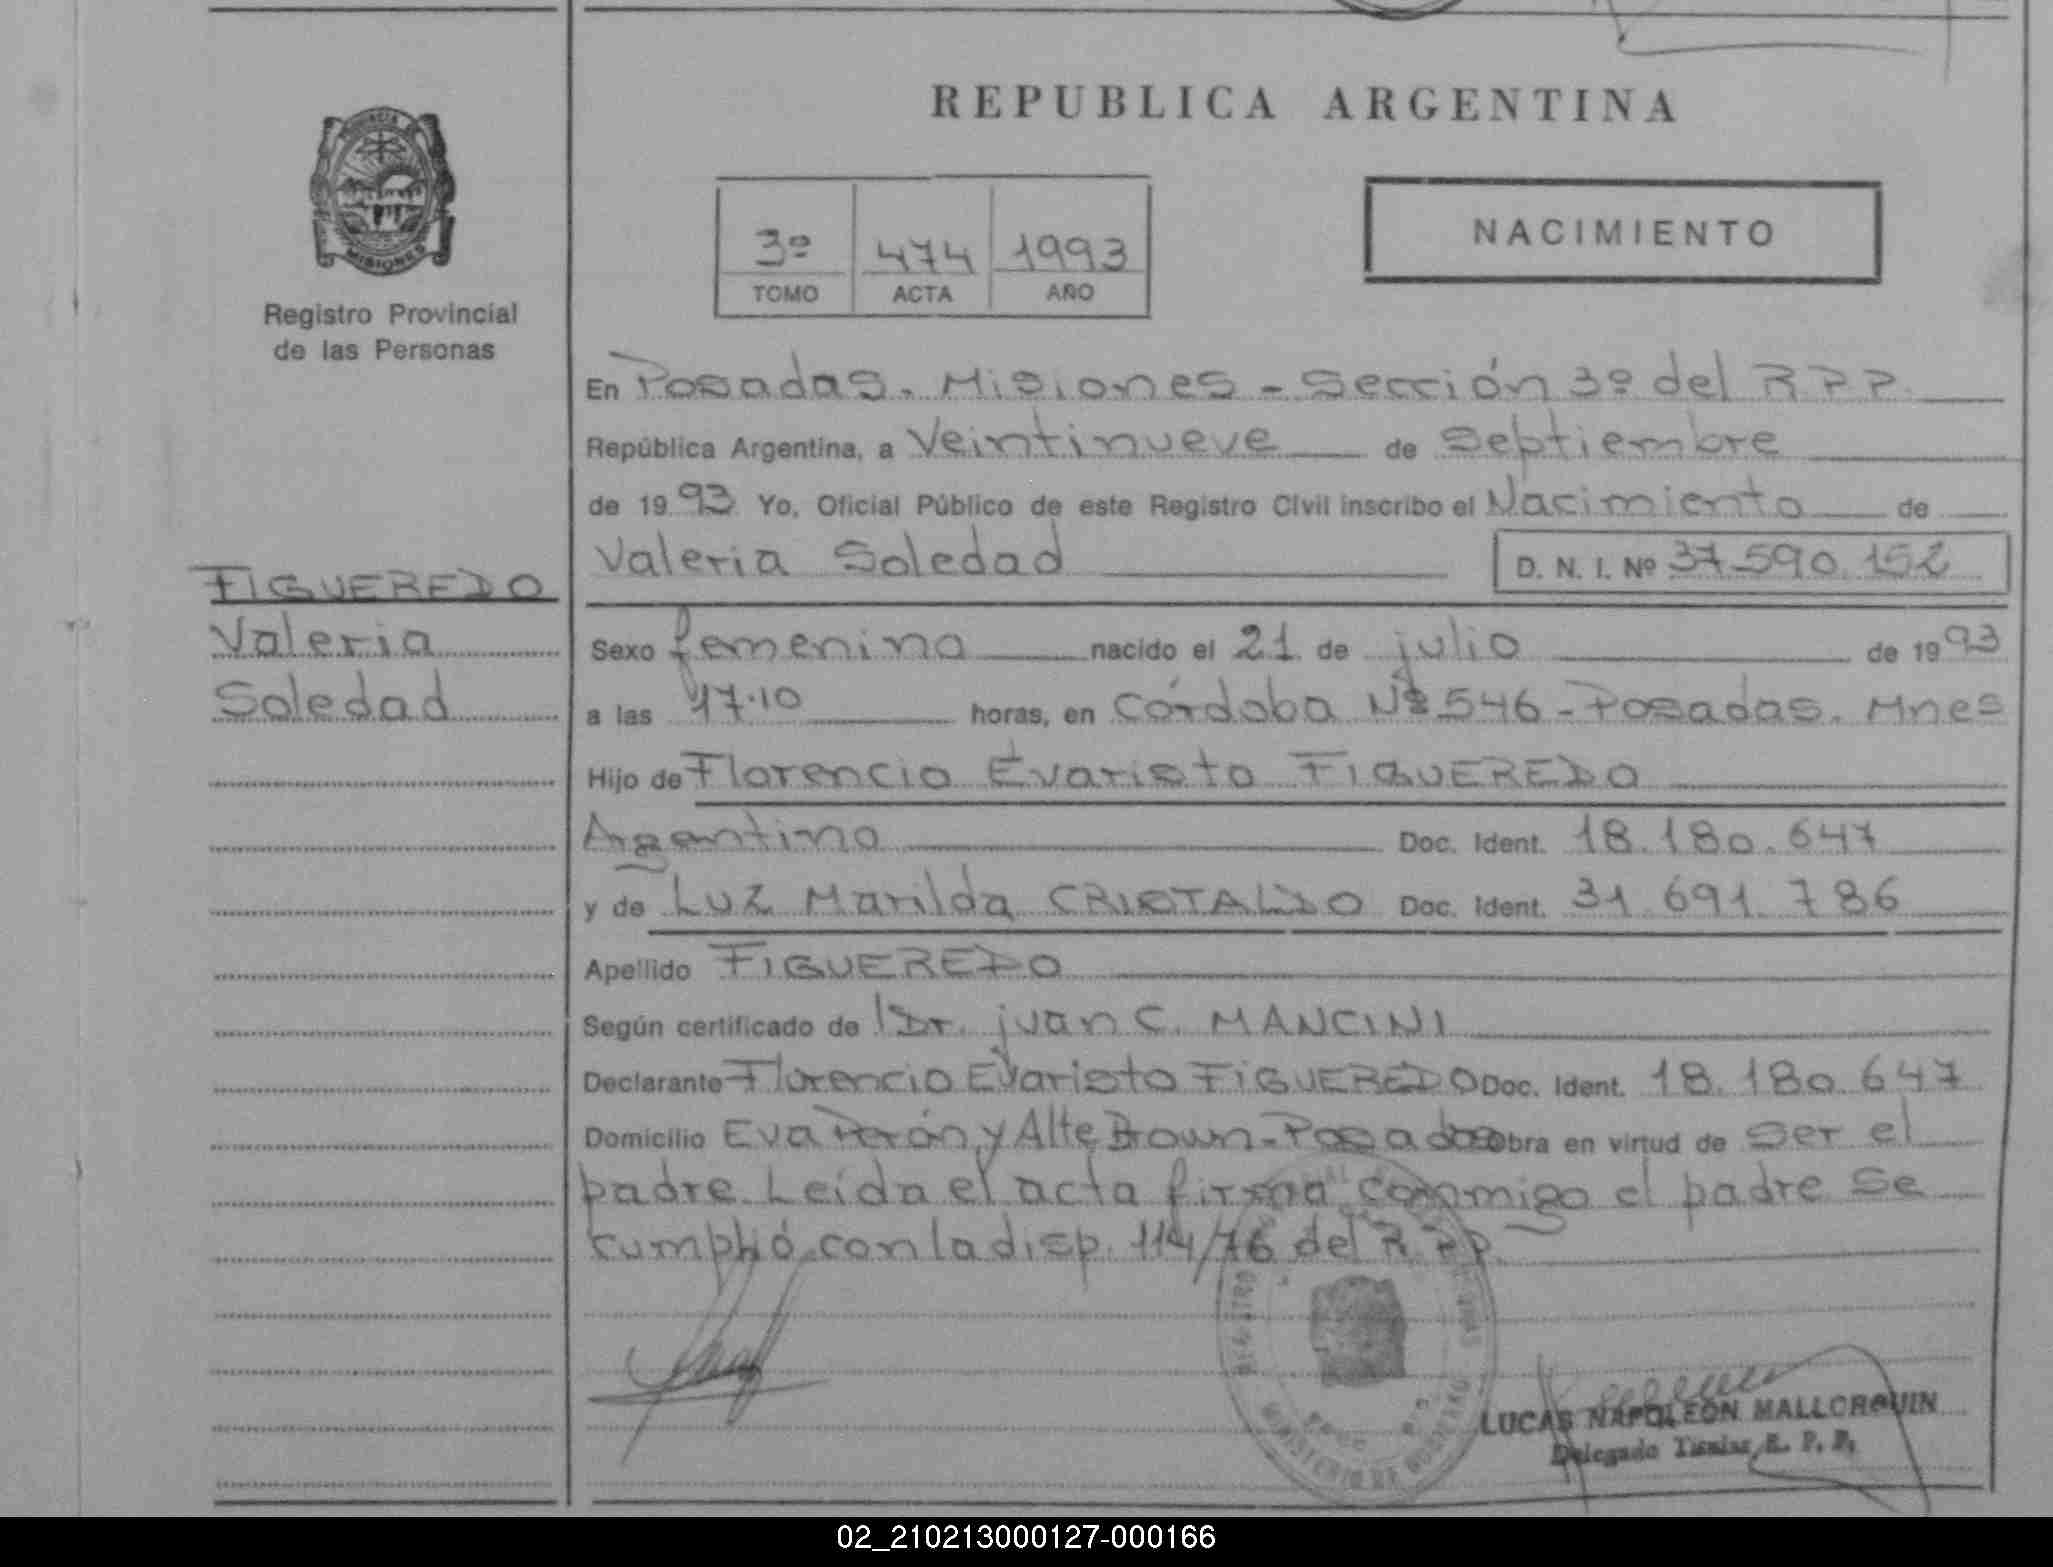 REPUBLICA ARGENTINA
PROVINCIA DE MISIONES
Registro Provincial
de las Personas
3º 474 1993
TOMO ACTA AÑO
NACIMIENTO
En Posadas. Misiones - Sección 3º del R P P.
República Argentina, a Veintinueve de Septiembre
de 19 93 Yo, Oficial Público de este Registro Civil inscribo el Nacimiento de
Valeria Soledad D. N. I. Nº 37.590.152
FIGUEREDO
Valeria
Soledad
Sexo femenino nacido el 21 de julio de 19 93
a las 17.10 horas, en Córdoba Nº 546 - Posadas. Mnes
Hijo de Florencio Evaristo FIGUEREDO
Argentino Doc. Ident. 18.180.647
y de Luz Marilda CRISTALDO Doc. Ident. 31.691.786
Apellido FIGUEREDO
Según certificado de Dr. juan C. MANCINI
Declarante Florencio Evaristo FIGUEREDO Doc. Ident. 18.180.647
Domicilio Eva Perón y Alte Brown - Posadas obra en virtud de ser el
padre. Leída el acta firma conmigo el padre se
cumplió con la disp. 114/76 del R. P P.
MINISTERIO DE GOBIERNO
LUCAS NAPOLEON MALLORQUIN
Delegado Titular R. P. P.
02_210213000127-000166